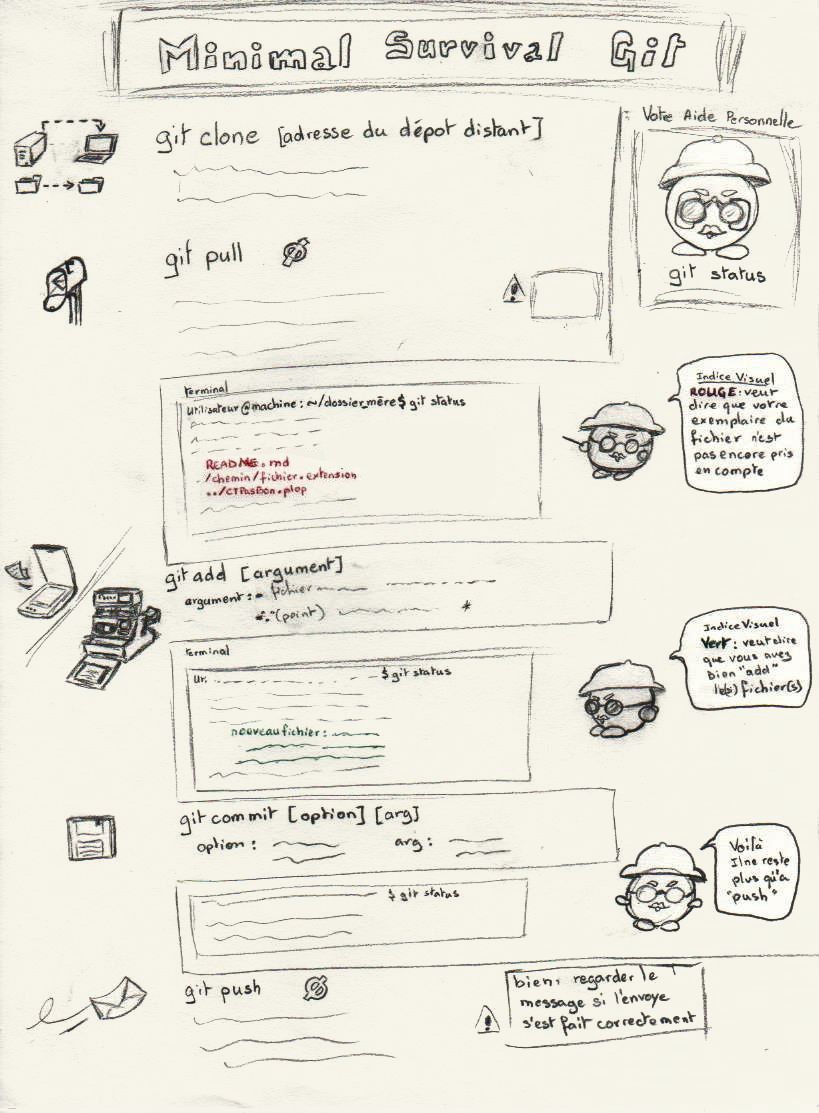 Minimal Survival Git
git clone [adresse du dépot distant]
Votre Aide Personnelle
git status
git pull Ø
Terminal
utilisateur@machine:~/dossier_mère$ git status
README.md
/chemin/fichier.extension
../CTPasBon.plop
Indice Visuel
ROUGE: veut
dire que votre
exemplaire du
fichier n'est
pas encore pris
en compte
git add [argument]
argument: - fichier
"."(point) *
Terminal
Ut. $ git status
nouveau fichier:
Indice Visuel
Vert: veut dire
que vous avez
bien "add"
le(s) fichier(s)
git commit [option] [arg]
option: arg:
$ git status
Voilà
Il ne reste
plus qu'a
"push"
git push Ø
bien regarder le
message si l'envoye
s'est fait correctement